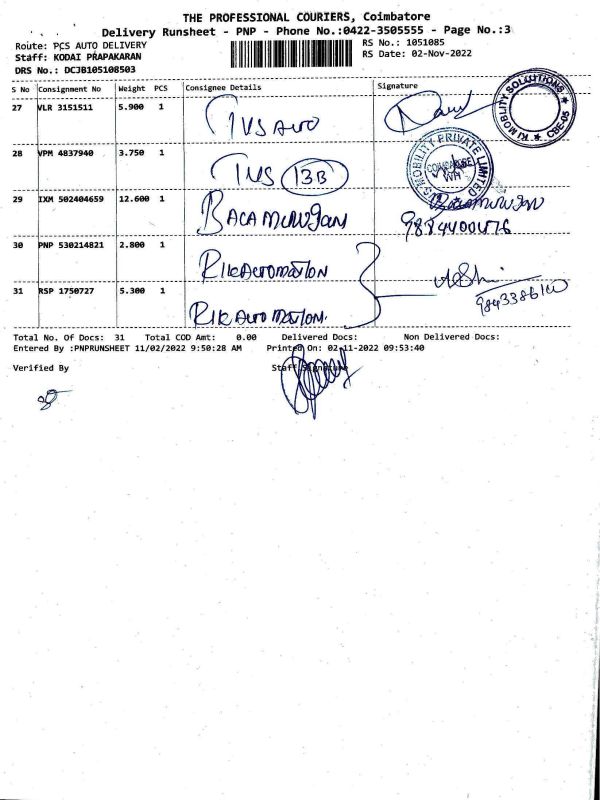 THE PROFESSIONAL COURIERS, Coimbatore
Delivery Runsheet - PNP - Phone No.:0422-3505555 - Page No.:3
Route: PCS AUTO DELIVERY
RS No.: 1051085
Staff: KODAI PRAPAKARAN
RS Date: 02-Nov-2022
DRS No.: DCJB105108503
S No Consignment No Weight PCS Consignee Details Signature
27 VLR 3151511 5.900 1 TVS AUTO
KJ MOBLITY SOLUTIONS ★ CBE-05 ★
28 VPM 4837940 3.750 1 TVS 13B
MOBILITY PRIVATE LIMITED
COIMBATORE
29 IXM 502404659 12.600 1 BALAMURUGAN
30 PNP 530214821 2.800 1 RIKAUTOMATION
31 RSP 1750727 5.300 1 RIKAUTOMATION.
Total No. Of Docs: 31 Total COD Amt: 0.00 Delivered Docs: Non Delivered Docs:
Entered By :PNPRUNSHEET 11/02/2022 9:50:28 AM Printed On: 02-11-2022 09:53:40
Verified By Staff Signature